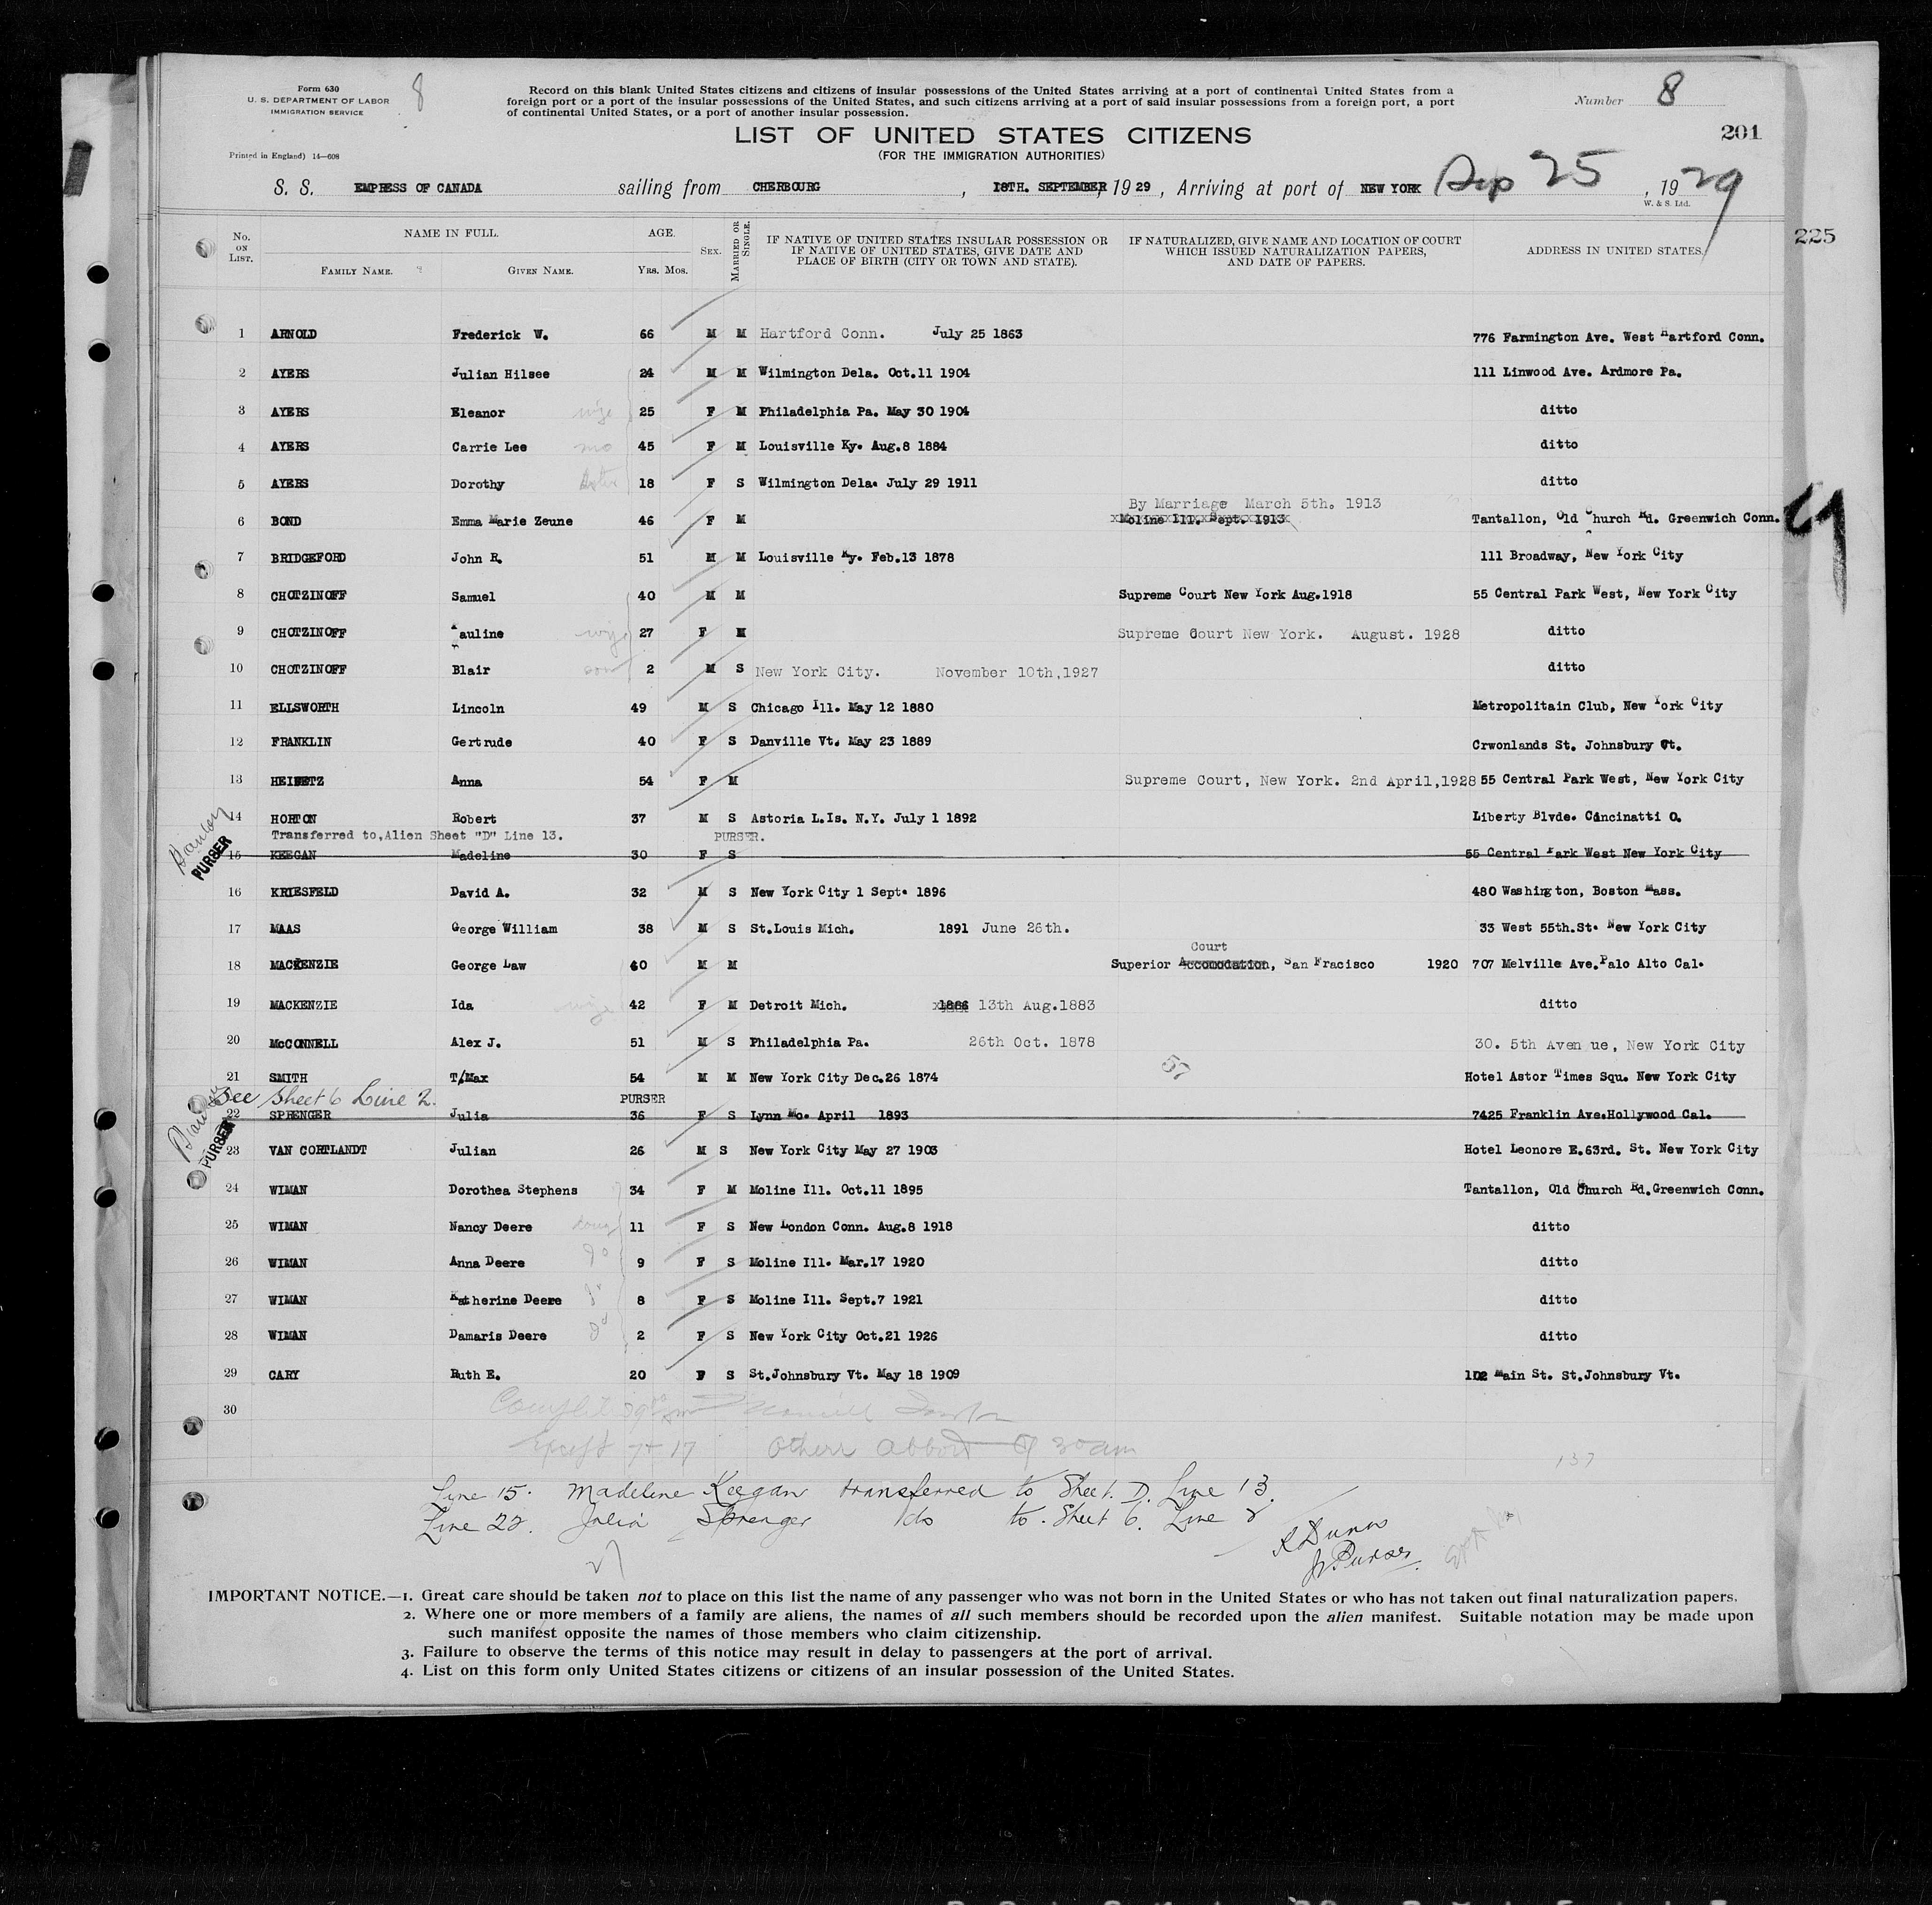 Form 630
U. S. DEPARTMENT OF LABOR
IMMIGRATION SERVICE
8
Record on this blank United States citizens and citizens of insular possessions of the United States arriving at a port of continental United States from a
foreign port or a port of the insular possessions of the United States, and such citizens arriving at a port of said insular possessions from a foreign port, a port
of continental United States, or a port of another insular possession.
Number 8
201
LIST OF UNITED STATES CITIZENS
(FOR THE IMMIGRATION AUTHORITIES)
Printed in England) 14—608
S. S. EMPRESS OF CANADA sailing from CHERBOURG, 18TH. SEPTEMBER, 1929, Arriving at port of NEW YORK Sep 25, 1929
W. & S. Ltd.
225
No. ON LIST. NAME IN FULL. FAMILY NAME. GIVEN NAME. AGE. YRS. MOS. SEX. MARRIED OR SINGLE. IF NATIVE OF UNITED STATES INSULAR POSSESSION OR IF NATIVE OF UNITED STATES, GIVE DATE AND PLACE OF BIRTH (CITY OR TOWN AND STATE). IF NATURALIZED, GIVE NAME AND LOCATION OF COURT WHICH ISSUED NATURALIZATION PAPERS, AND DATE OF PAPERS. ADDRESS IN UNITED STATES.
1 ARNOLD Frederick W. 66 M M Hartford Conn. July 25 1863 776 Farmington Ave. West Hartford Conn.
2 AYERS Julian Hilsee 24 M M Wilmington Dela. Oct.11 1904 111 Linwood Ave. Ardmore Pa.
3 AYERS Eleanor wife 25 F M Philadelphia Pa. May 30 1904 ditto
4 AYERS Carrie Lee mo 45 F M Louisville Ky. Aug.8 1884 ditto
5 AYERS Dorothy 18 F S Wilmington Dela. July 29 1911 ditto
By Marriage March 5th. 1913
6 BOND Emma Marie Zeune 46 F M Moline Ill. Sept. 1913 Tantallon, Old Church Rd. Greenwich Conn.
7 BRIDGEFORD John R. 51 M M Louisville Ky. Feb.13 1878 111 Broadway, New York City
8 CHOTZINOFF Samuel 40 M M Supreme Court New York Aug.1918 55 Central Park West, New York City
9 CHOTZINOFF Pauline wife 27 F M Supreme Court New York. August. 1928 ditto
10 CHOTZINOFF Blair son 2 M S New York City. November 10th,1927 ditto
11 ELLSWORTH Lincoln 49 M S Chicago Ill. May 12 1880 Metropolitain Club, New York City
12 FRANKLIN Gertrude 40 F S Danville Vt. May 23 1889 Crwonlands St. Johnsbury Vt.
13 HEIFETZ Anna 54 F M Supreme Court, New York. 2nd April,1928 55 Central Park West, New York City
14 HORTON Robert 37 M S Astoria L.Is. N.Y. July 1 1892 Liberty Blvde. Cincinatti O.
Transferred to,Alien Sheet "D" Line 13. PURSER.
PURSER
15 KEEGAN Madeline 30 F S 55 Central Park West New York City
16 KRIESFELD David A. 32 M S New York City 1 Sept. 1896 480 Washington, Boston Mass.
17 MAAS George William 38 M S St.Louis Mich. 1891 June 26th. 33 West 55th.St. New York City
Court
18 MACKENZIE George Law 40 M M Superior Accomodation, San Fracisco 1920 707 Melville Ave.Palo Alto Cal.
19 MACKENZIE Ida wife 42 F M Detroit Mich. 1886 13th Aug.1883 ditto
20 McCONNELL Alex J. 51 M S Philadelphia Pa. 26th Oct. 1878 30. 5th Aven ue, New York City
57
21 SMITH T/Max 54 M M New York City Dec.26 1874 Hotel Astor Times Squ. New York City
See Sheet 6 Line 2. PURSER
22 SPRENGER Julia 36 F S Lynn Mo. April 1893 7425 Franklin Ave.Hollywood Cal.
PURSER
23 VAN CORTLANDT Julian 26 M S New York City May 27 1903 Hotel Leonore E.63rd. St. New York City
24 WIMAN Dorothea Stephens 34 F M Moline Ill. Oct.11 1895 Tantallon, Old Church Rd.Greenwich Conn.
25 WIMAN Nancy Deere daug 11 F S New London Conn. Aug.8 1918 ditto
26 WIMAN Anna Deere do 9 F S Moline Ill. Mar.17 1920 ditto
27 WIMAN Katherine Deere do 8 F S Moline Ill. Sept.7 1921 ditto
28 WIMAN Damaris Deere do 2 F S New York City Oct.21 1926 ditto
29 CARY Ruth E. 20 F S St.Johnsbury Vt. May 18 1909 102 Main St. St.Johnsbury Vt.
30
7 + 17 others 30 am
137
Line 15. Madeline Keegan transferred to Sheet. D. Line 13.
Line 22. Julia Sprenger do to. Sheet 6. Line 2
Purser.
IMPORTANT NOTICE.—1. Great care should be taken not to place on this list the name of any passenger who was not born in the United States or who has not taken out final naturalization papers.
2. Where one or more members of a family are aliens, the names of all such members should be recorded upon the alien manifest. Suitable notation may be made upon
such manifest opposite the names of those members who claim citizenship.
3. Failure to observe the terms of this notice may result in delay to passengers at the port of arrival.
4. List on this form only United States citizens or citizens of an insular possession of the United States.